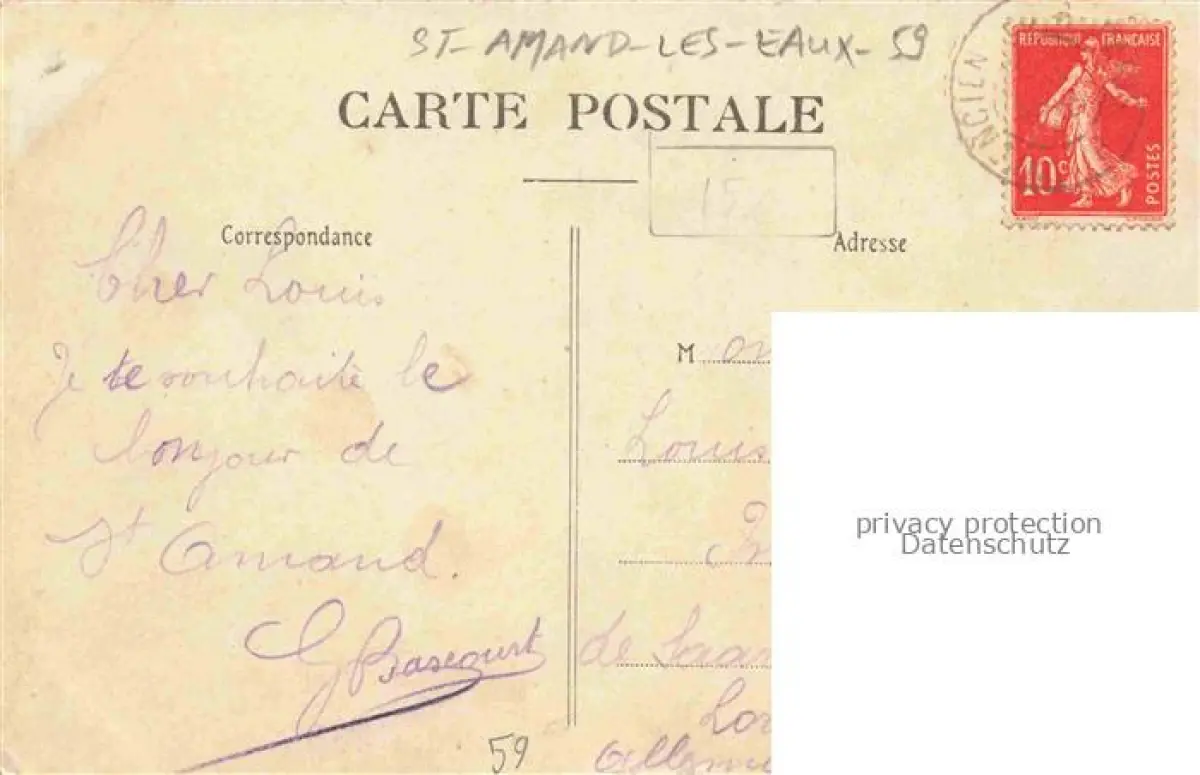 ST-AMAND-LES-EAUX-59
CARTE POSTALE
RÉPUBLIQUE FRANÇAISE
10c
POSTES
NCIEN
15
Correspondance
Adresse
Cher Louis
Je te souhaite le
bonjour de
St Amand.
G Bascourt
M
Louis
de
59
privacy protection
Datenschutz